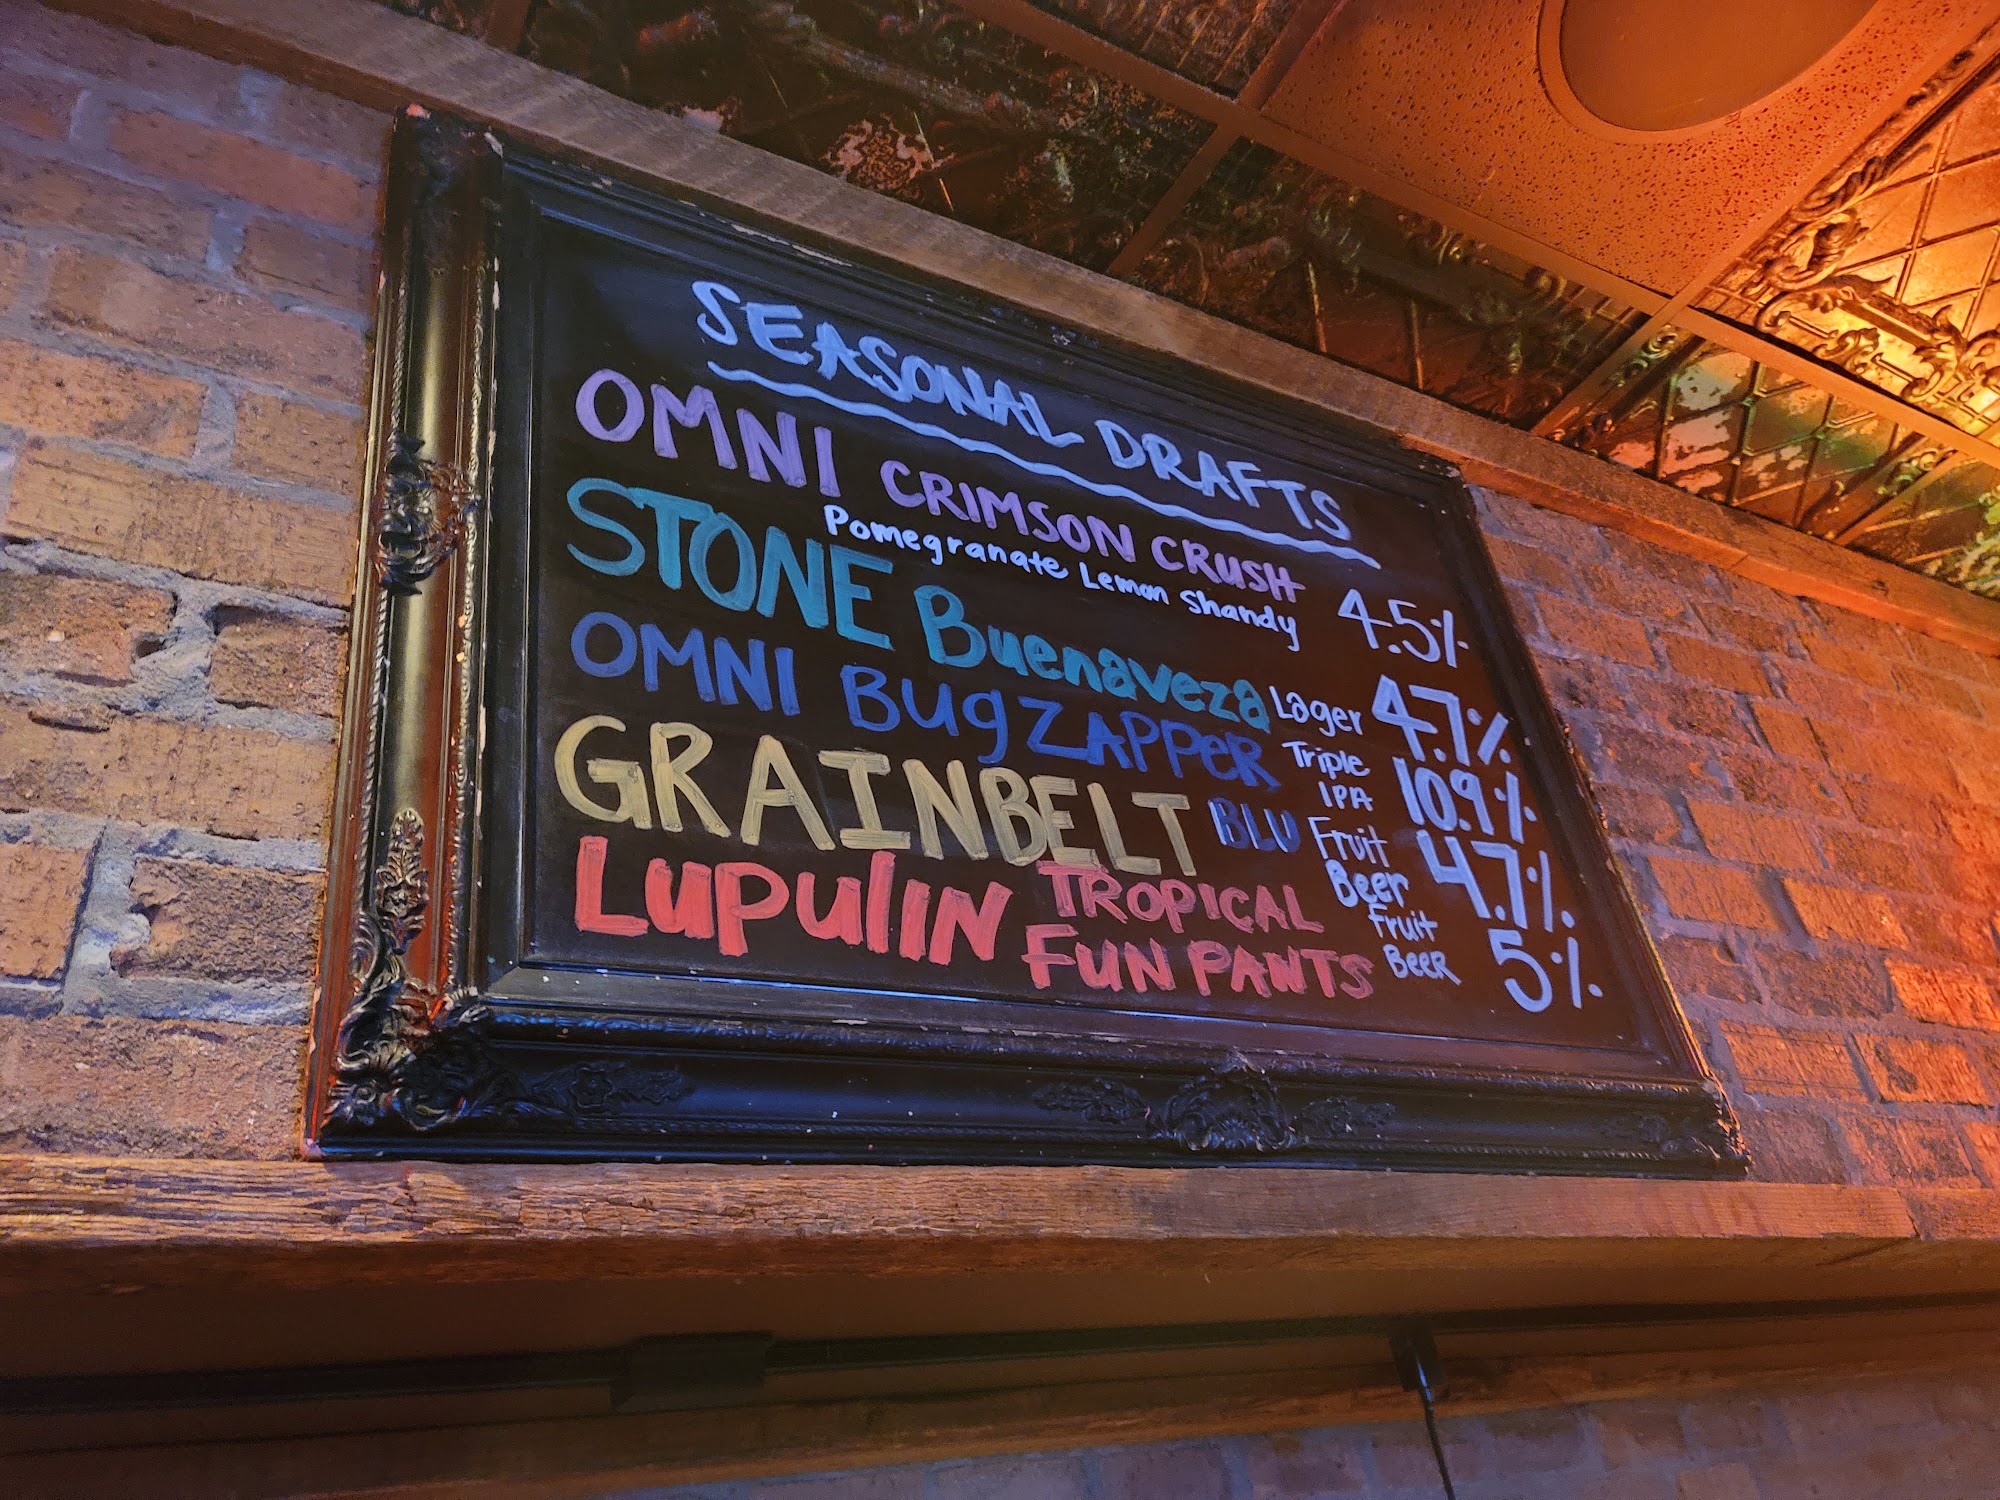 SEASONAL DRAFTS
OMNI CRIMSON CRUSH
Pomegranate Lemon Shandy 4.5%
STONE Buenaveza Lager 4.7%
OMNI BugZAPPER Triple IPA 10.9%
GRAINBELT BLU Fruit Beer 4.7%
LupulIN TROPICAL FUN PANTS Fruit Beer 5%